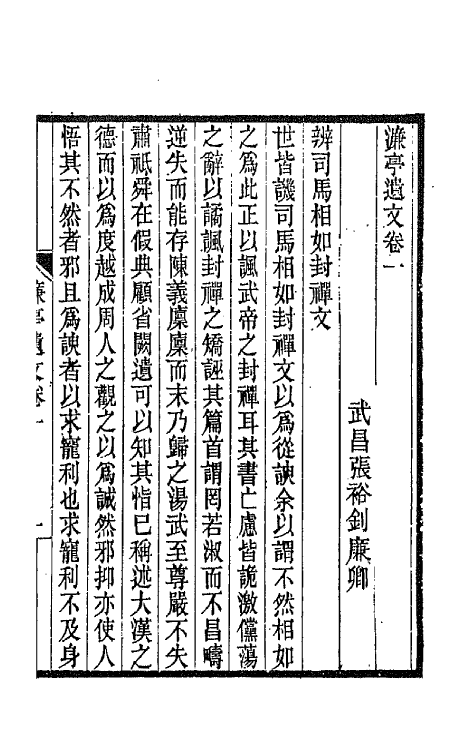 濂亭遺文卷一
武昌張裕釗廉卿
辨司馬相如封禪文
世皆譏司馬相如封禪文以爲從諛余以謂不然相如
之爲此正以諷武帝之封禪耳其書亡慮皆詭激儻蕩
之辭以譎諷封禪之矯誣其篇首謂罔若淑而不昌疇
逆失而能存陳義凜凜而末乃歸之湯武至尊嚴不失
肅祗舜在假典顧省闕遺可以知其恉已稱述大漢之
德而以爲度越成周人之觀之以爲誠然邪抑亦使人
悟其不然者邪且爲諛者以求寵利也求寵利不及身
濂亭遺文卷一
一